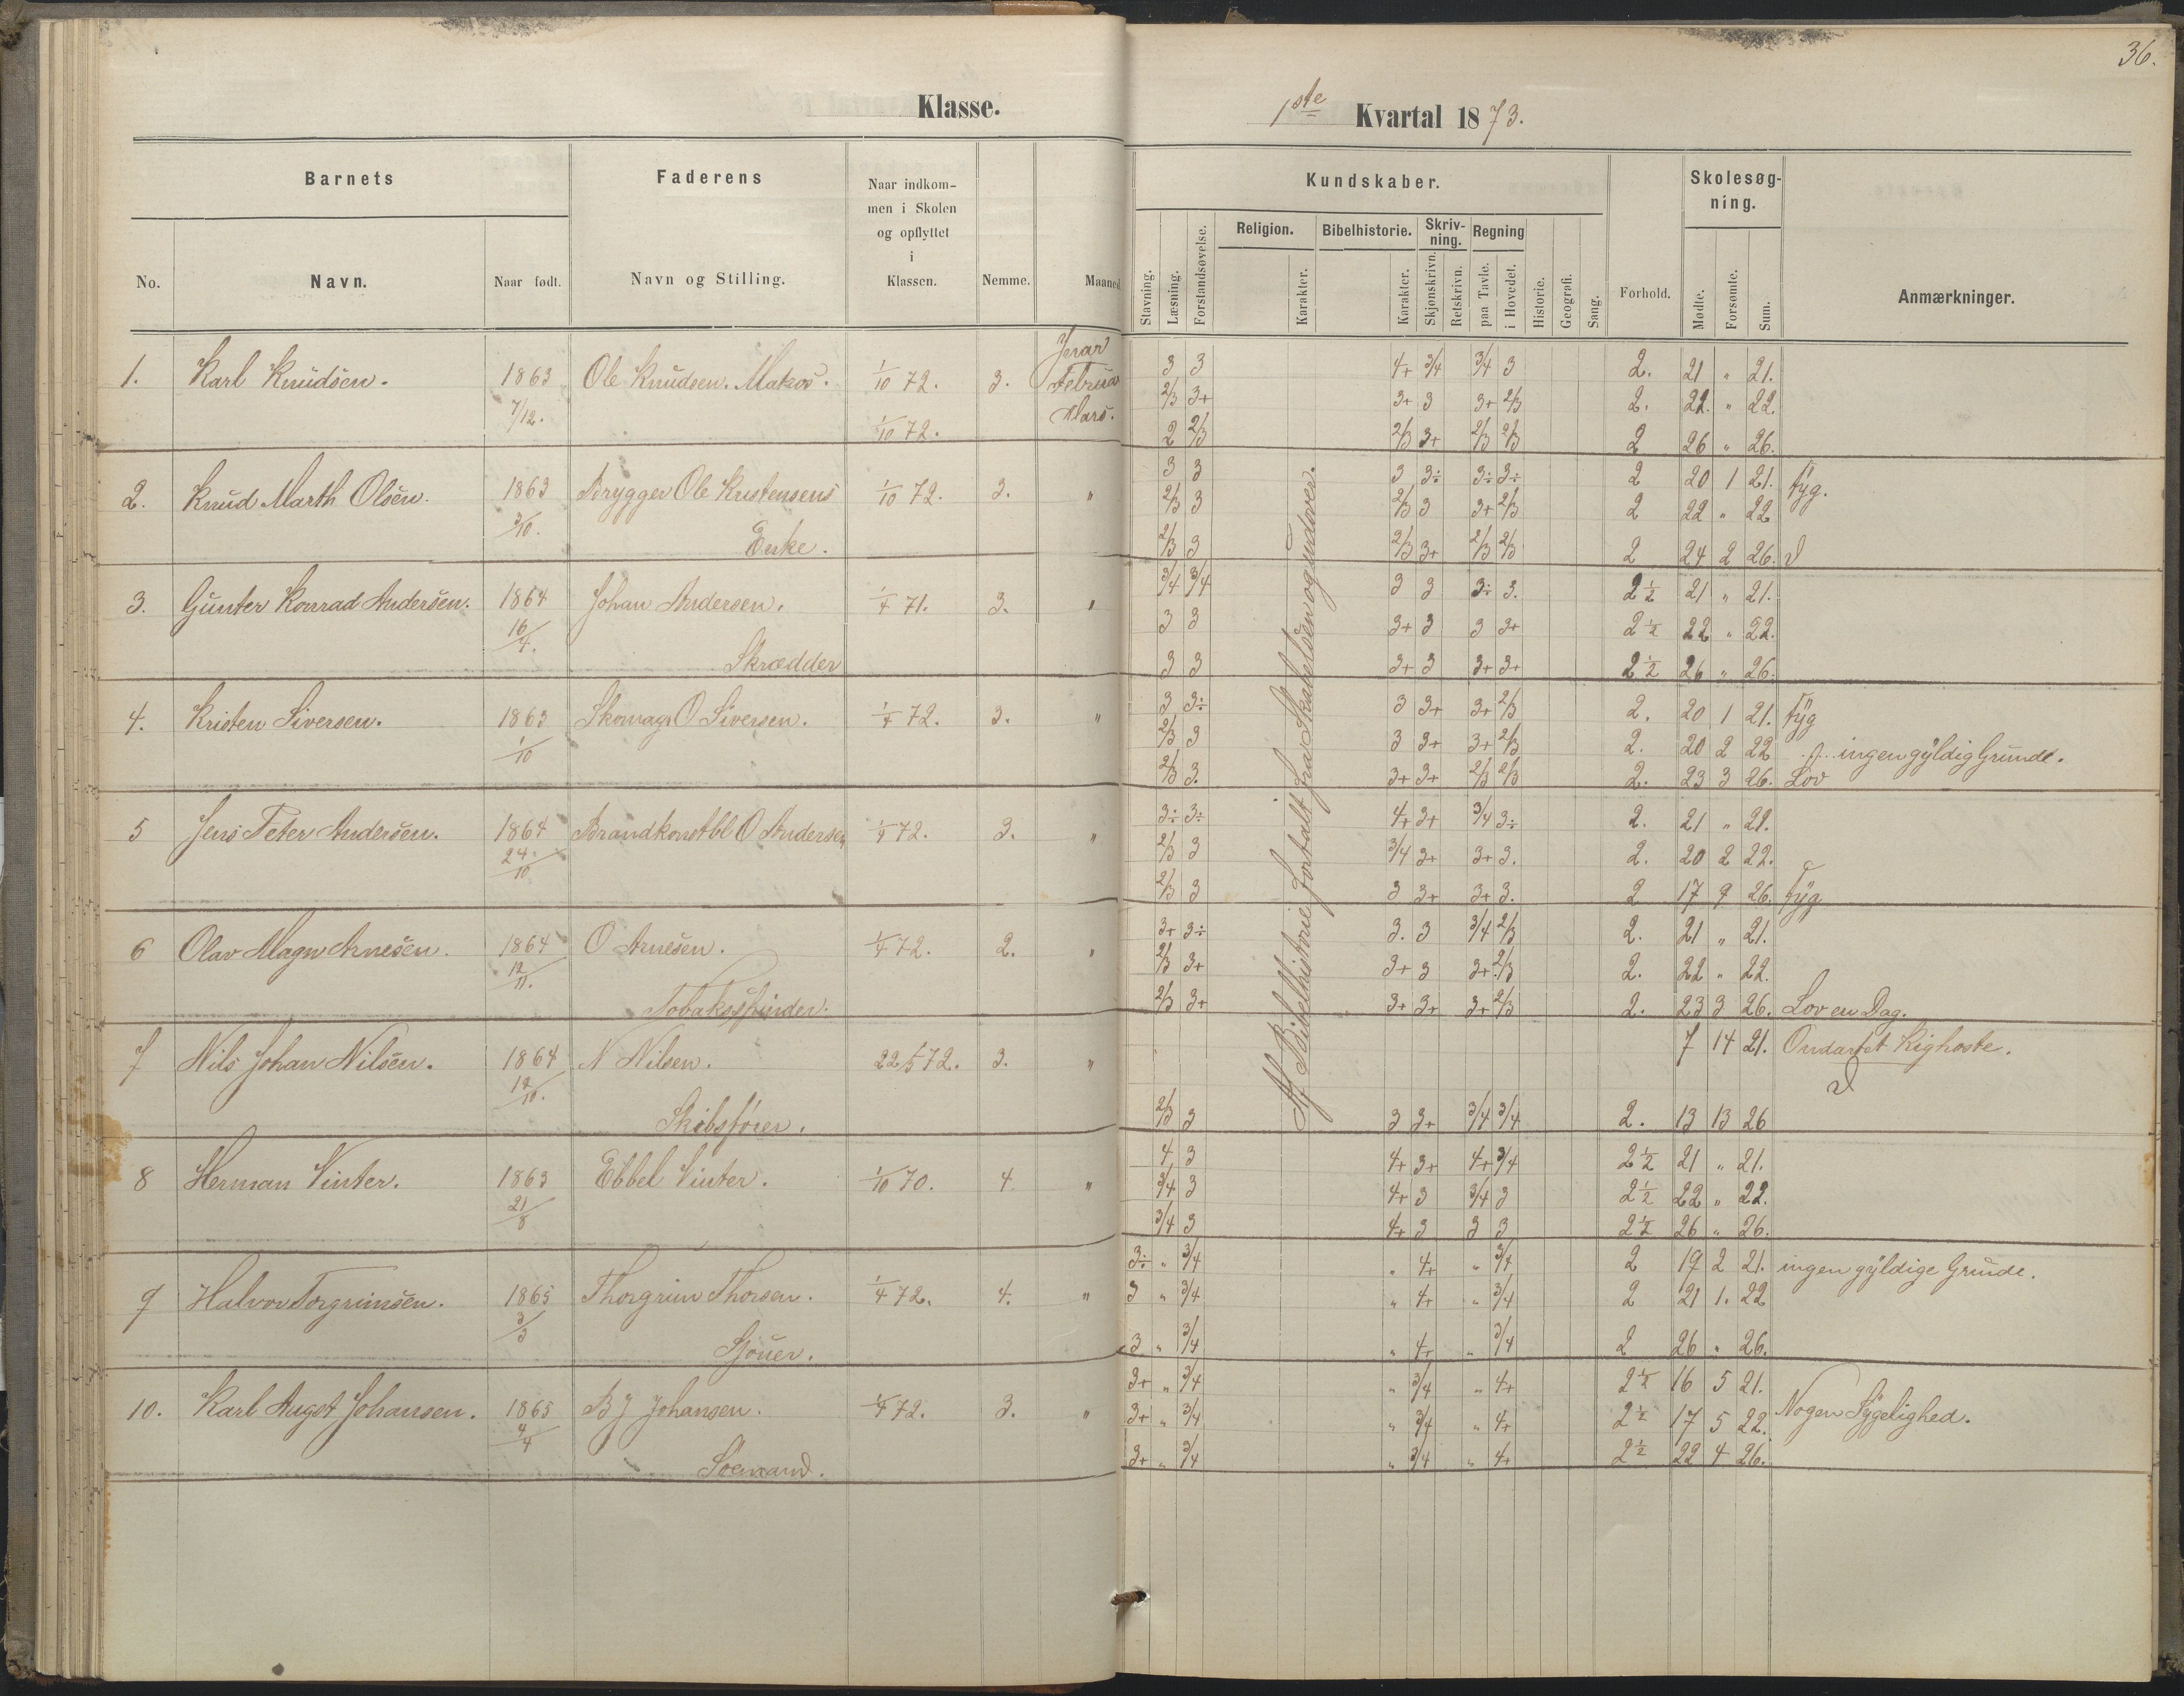 36.
Klasse.
1ste Kvartal 1873.
Barnets
Faderens
Naar indkom-
men i Skolen
og opflyttet
i
Klassen.
No.
Navn.
Naar født.
Navn og Stilling.
Nemme.
Maaned
Kundskaber.
Skolesøg-
ning.
Religion. Bibelhistorie. Skriv-
ning. Regning
Stavning. Læsning. Forstandsøvelse. Karakter. Karakter. Skjønskrivn. Retskrivn. paa Tavle. i Hovedet. Historie. Geografi. Sang. Forhold. Mødte. Forsømte. Sum. Anmærkninger.
Af Bibelhistorie fortalt fra Skabelsen og udover.
Januar
1. Karl Knudsen. 1863 Ole Knudsen. Matros. 1/10 72. 3. Februar
7/12. 1/10 72. Mars.
3 3 4+ 3/4 3/4 3 2. 21 " 21.
2/3 3+ 3+ 3 3+ 2/3 2. 22. " 22.
2 2/3 2/3 3+ 2/3 2/3 2 26 " 26.
2. Knud Marth Olsen. 1863 Brygger Ole Kristensens 1/10 72. 3. "
3/10. Enke.
3 3 3 3÷ 3÷ 3÷ 2 20 1 21. syg.
2/3 3 2/3 3 3+ 2/3 2 22 " 22
2/3 3 2/3 3+ 2/3 2/3 2 24 2 26.
3. Gunter Konrad Andersen. 1864 Johan Andersen. 1/4 71. 3. "
16/4. Skrædder
3/4 3/4 3 3 3÷ 3. 2 1/2 21 " 21.
3 3 3+ 3 3 3+ 2 1/2 22 " 22.
3 3 3+ 3 3+ 3+ 2 1/2 26 " 26.
4. Kristen Siversen. 1863 Skomagr O Siversen. 1/4 72. 3. "
1/10
3 3÷ 3 3+ 3+ 2/3 2. 20 1 21. syg
2/3 3 3 3+ 3+ 2/3 2. 20 2 22 ingen gyldig Grunde.
2/3 3. 3+ 3+ 2/3 2/3 2. 23 3 26. Lov
5 Jens Peter Andersen. 1864 Brandkonstbl O Andersen 1/4 72. 3. "
24/10
3÷ 3÷ 4+ 3+ 3/4 3÷ 2. 21 " 21.
2/3 3 3/4 3+ 3+ 3. 2. 20 2 22.
2/3 3 3 3+ 3+ 3. 2 17 9 26. syg
6 Olav Magn Arnesen. 1864 O Arnesen. 1/4 72. 2. "
12/11. Tobaksspinder.
3+ 3÷ 3. 3 3/4 2/3 2. 21 " 21.
2/3 3+ 3+ 3 3+ 2/3 2. 22 " 22.
2/3 3+ 3+ 3+ 3+ 2/3 2. 23 3 26. Lov en Dag.
7 Nils Johan Nilsen. 1864 N Nilsen. 22/5 72. 3. "
12/10. Skibsfører.
7 14 21. Ondartet Kighoste.
2/3 3 3 3+ 3/4 3/4 2. 13 13 26
8 Herman Vinter. 1863 Ebbel Vinter. 1/10 70. 4 "
21/8
4 3 4+ 3+ 4+ 3/4 2 1/2 21 " 21.
3/4 3 4+ 3 3/4 3 2 1/2 22 " 22.
3/4 3 4+ 3 3 3 2 1/2 26 " 26.
9 Halvor Torgrimsen. 1865 Thorgrim Thorsen. 1/4 72. 4. "
3/3 Sjouer.
3÷ " 3/4 " 4+ " 3/4 2 19 2 21. ingen gyldige Grunde.
3 " 3/4 " 4+ " 3/4 2 21 1. 22
3 " 3/4 " 4+ " 3/4 2 26 " 26.
10. Karl Augst Johansen. 1865 B J Johansen. 1/4 72. 3. "
4/4 Sømand.
3+ " 3/4 " 3/4 " 4+ 2 1/2 16 5 21.
3+ " 3/4 " 3/4 " 4+ 2 1/2 17 5 22. Nogen Sygelighed.
3+ " 3/4 " 3/4 " 4+ 2 1/2 22 4 26.